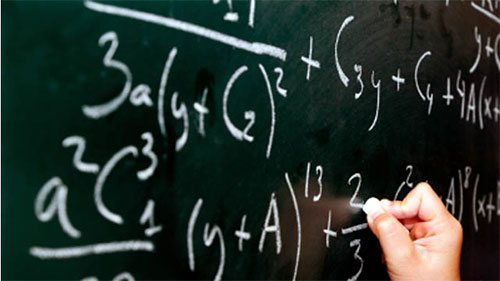 3a(y+C₂)² + C₃y + C₄ + 4A(x
a²C₁³ (y+A)¹³ + 2/3 C² A)⁸(x+